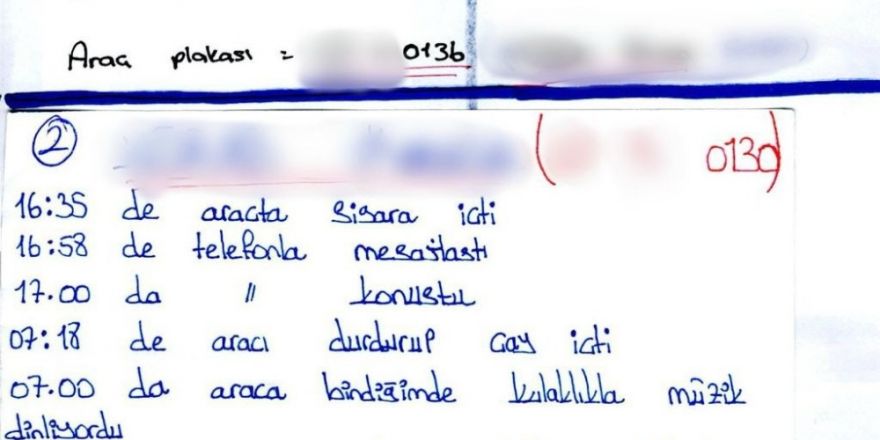 Araç plakası = 0136
2 ( 0130)
16:35 de araçta sigara içti
16:58 de telefonla mesajlaştı
17.00 da " konuştu
07:18 de aracı durdurup çay içti
07.00 da araca bindiğimde kulaklıkla müzik
dinliyordu